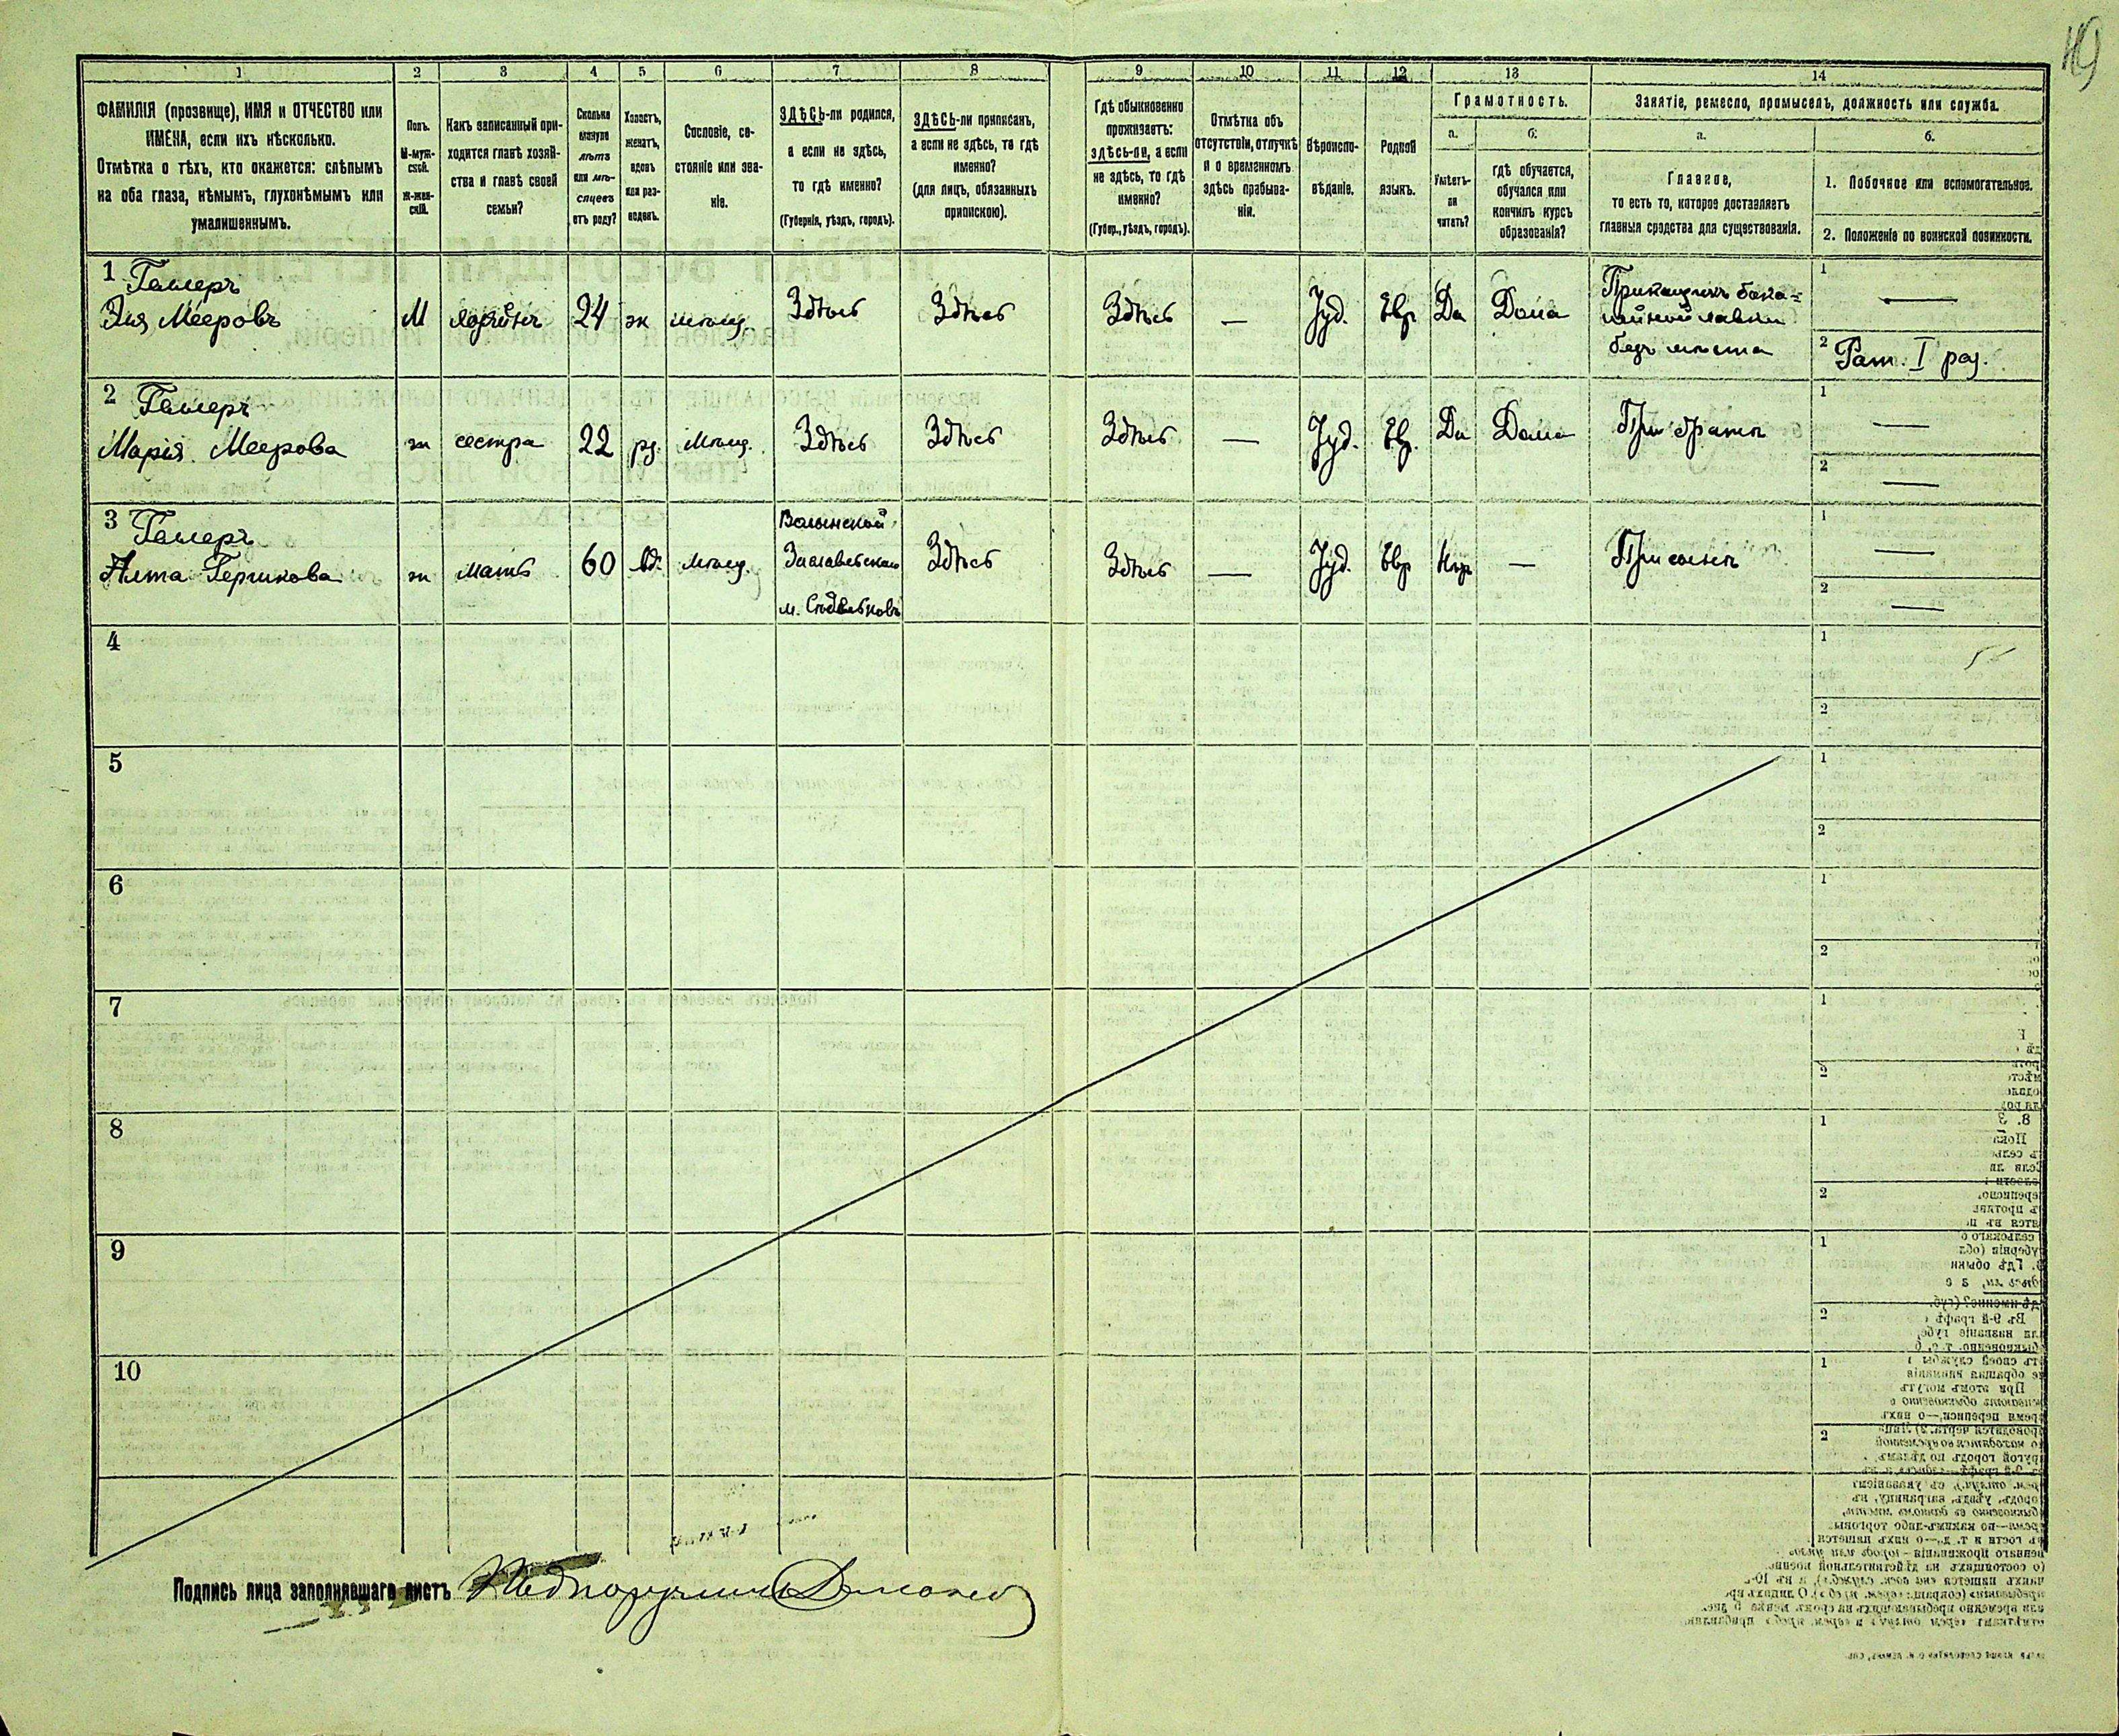 1 2 3 4 5 6 7 8 9 10 11 12 13 14
ФАМИЛІЯ (прозвище), ИМЯ и ОТЧЕСТВО или
ИМЕНА, если ихъ нѣсколько.
Отмѣтка о тѣхъ, кто окажется: слѣпымъ
на оба глаза, нѣмымъ, глухонѣмымъ или
умалишеннымъ.
Полъ.
М-муж-
ской.
Ж-жен-
скій.
Какъ записанный при-
ходится главѣ хозяй-
ства и главѣ своей
семьи?
Сколько
минуло
лѣтъ
или мѣ-
сяцевъ
отъ роду?
Холостъ,
женатъ,
вдовъ
или раз-
веденъ.
Сословіе, со-
стояніе или зва-
ніе.
ЗДѢСЬ-ли родился,
а если не здѣсь,
то гдѣ именно?
(Губернія, уѣздъ, городъ).
ЗДѢСЬ-ли приписанъ,
а если не здѣсь, то гдѣ
именно?
(для лицъ, обязанныхъ
припискою).
Гдѣ обыкновенно
проживаетъ:
здѣсь-ли, а если
не здѣсь, то гдѣ
именно?
(Губер., уѣздъ, городъ).
Отмѣтка объ
отсутствіи, отлучкѣ
и о временномъ
здѣсь пребыва-
ніи.
Вѣроиспо-
вѣданіе.
Родной
языкъ.
Грамотность.
а.
Умѣетъ-
ли
читать?
б.
гдѣ обучается,
обучался или
кончилъ курсъ
образованія?
Занятіе, ремесло, промыселъ, должность или служба.
а.
Главное,
то есть то, которое доставляетъ
главныя средства для существованія.
б.
1. Побочное или вспомогательное.
2. Положеніе по воинской повинности.
1 Гамеръ
Эля Мееровъ
М
хозяинъ
24
ж
мѣщ
Здѣсь
Здѣсь
Здѣсь
—
Іуд.
Евр
Да
Дома
Прикащикъ бака-
лейной лавки
безъ мѣста
1 —
2 Рат. I раз.
2 Гамеръ
Марія Меерова
ж
сестра
22
рз.
Мѣщ.
Здѣсь
Здѣсь
Здѣсь
—
Іуд.
Евр.
Да
Дома
При братѣ
1 —
2 —
3 Гамеръ
Гершкова
ж
мать
60
вд.
Мѣщ.
Волынской
Заславльскаго
м.
Здѣсь
Здѣсь
—
Іуд.
Евр
Нѣтъ
—
При сынѣ
1 —
2 —
4
1
2
5
1
2
6
1
2
7
1
2
8
1
2
9
1
2
10
1
2
Подпись лица заполнявшаго листъ